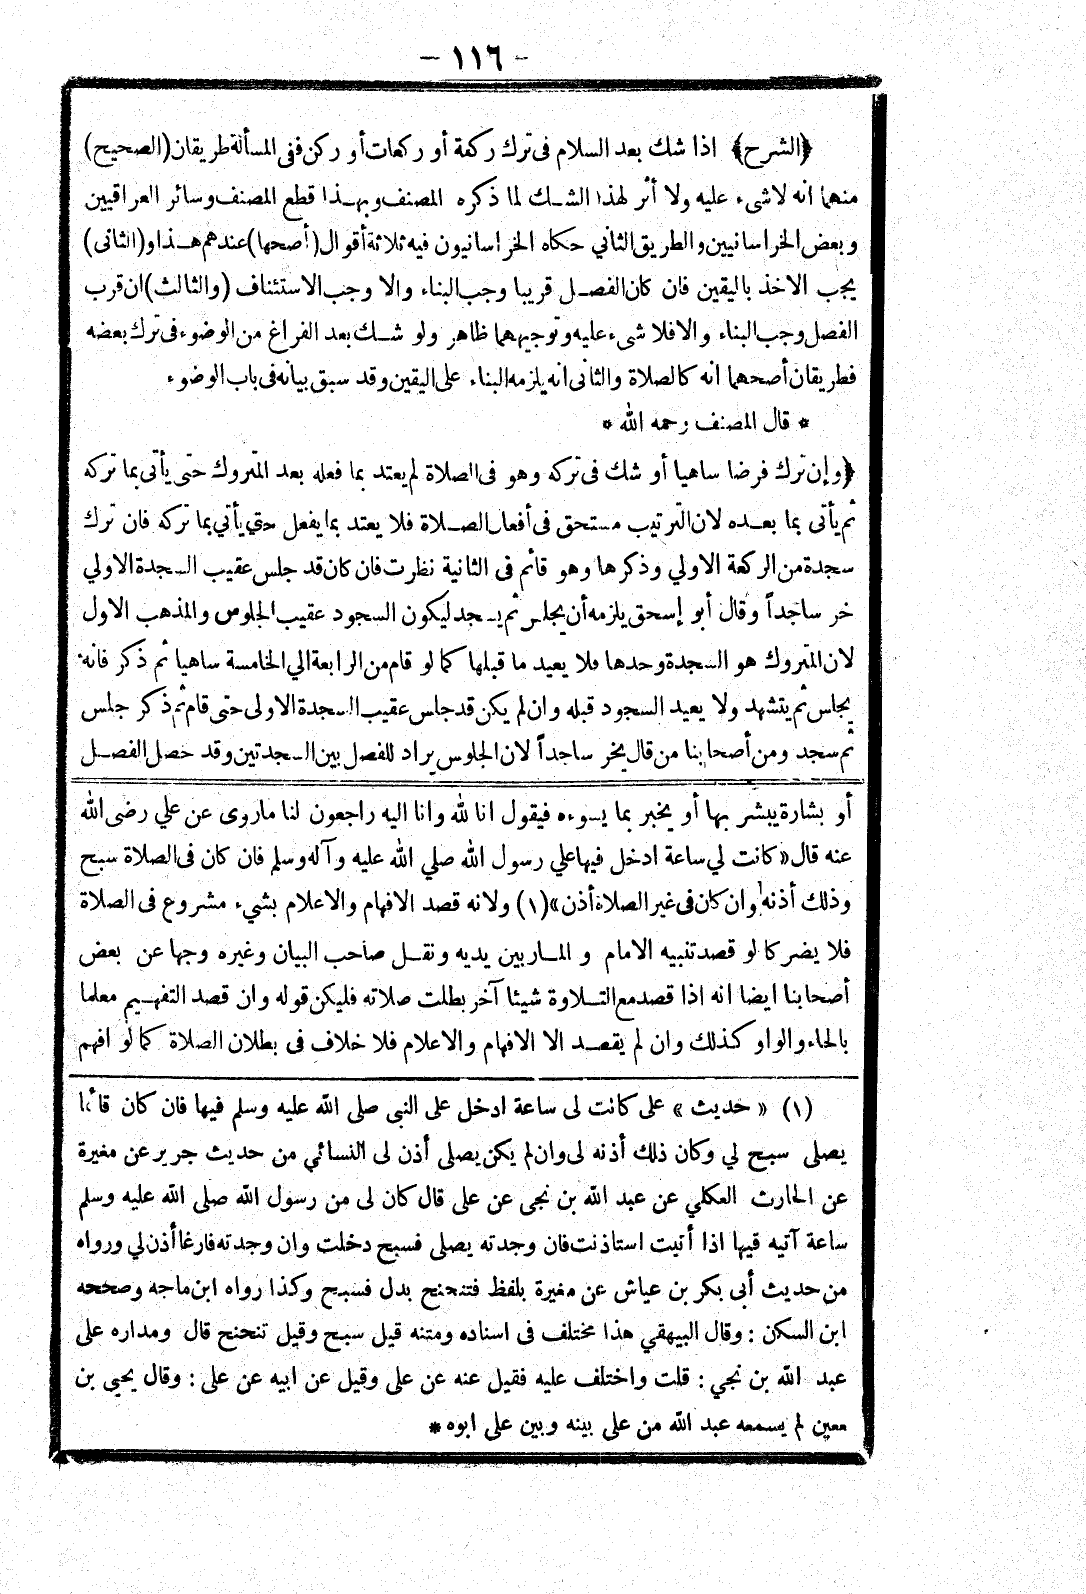 - ١١٦ -
﴿الشرح﴾ اذا شك بعد السلام فى ترك ركعة أو ركعات أو ركن ففى المسألة طريقان (الصحيح)
منهما انه لا شىء عليه ولا أثر لهذا الشك لما ذكره المصنف وبهذا قطع المصنف وسائر العراقيين
وبعض الخراسانيين والطريق الثاني حكاه الخراسانيون فيه ثلاثة أقوال (أصحها) عندهم هذا و(الثانى)
يجب الاخذ باليقين فان كان الفصل قريبا وجب البناء والا وجب الاستئناف (والثالث) ان قرب
الفصل وجب البناء والا فلا شىء عليه وتوجيههما ظاهر ولو شك بعد الفراغ من الوضوء فى ترك بعضه
فطريقان أصحهما انه كالصلاة والثانى انه يلزمه البناء على اليقين وقد سبق بيانه فى باب الوضوء
* قال المصنف رحمه الله *
﴿وإن ترك فرضا ساهيا أو شك فى تركه وهو فى الصلاة لم يعتد بما فعله بعد المتروك حتى يأتى بما تركه
ثم يأتى بما بعده لان الترتيب مستحق فى أفعال الصلاة فلا يعتد بما يفعل حتي يأتي بما تركه فان ترك
سجدة من الركعة الاولي وذكرها وهو قائم فى الثانية نظرت فان كان قد جلس عقيب السجدة الاولي
خر ساجداً وقال أبو إسحق يلزمه أن يجلس ثم يسجد ليكون السجود عقيب الجلوس والمذهب الاول
لان المتروك هو السجدة وحدها فلا يعيد ما قبلها كما لو قام من الرابعة الي الخامسة ساهيا ثم ذكر فانه
يجلس ثم يتشهد ولا يعيد السجود قبله وان لم يكن قد جلس عقيب السجدة الاولى حتى قام ثم ذكر جلس
ثم سجد ومن أصحابنا من قال يخر ساجداً لان الجلوس يراد للفصل بين السجدتين وقد حصل الفصل
أو بشارة يبشر بها أو يخبر بما يسوءه فيقول انا لله وانا اليه راجعون لنا ماروى عن علي رضى الله
عنه قال « كانت لي ساعة ادخل فيها علي رسول الله صلي الله عليه وآله وسلم فان كان فى الصلاة سبح
وذلك أذنه وان كان فى غير الصلاة أذن » (١) ولانه قصد الافهام والاعلام بشيء مشروع فى الصلاة
فلا يضر كما لو قصد تنبيه الامام و المار بين يديه ونقل صاحب البيان وغيره وجها عن بعض
أصحابنا ايضا انه اذا قصد مع التلاوة شيئا آخر بطلت صلاته فليكن قوله وان قصد التفهيم معلما
بالحاء والواو كذلك وان لم يقصد الا الافهام والاعلام فلا خلاف فى بطلان الصلاة كما لو افهم
(١) « حديث » على كانت لى ساعة ادخل على النبى صلى الله عليه وسلم فيها فان كان قائما
يصلى سبح لي وكان ذلك أذنه لى وان لم يكن يصلى أذن لى النسائي من حديث جرير عن مغيرة
عن الحارث العكلي عن عبد الله بن نجى عن على قال كان لى من رسول الله صلى الله عليه وسلم
ساعة آتيه فيها اذا أتيت استاذنت فان وجدته يصلى فسبح دخلت وان وجدته فارغا أذن لي ورواه
من حديث أبى بكر بن عياش عن مغيرة بلفظ فتنحنح بدل فسبح وكذا رواه ابن ماجه وصححه
ابن السكن : وقال البيهقي هذا مختلف فى اسناده ومتنه قيل سبح وقيل تنحنح قال ومداره على
عبد الله بن نجي : قلت واختلف عليه فقيل عنه عن على وقيل عن ابيه عن على : وقال يحيى بن
معين لم يسمعه عبد الله من على بينه وبين على ابوه *